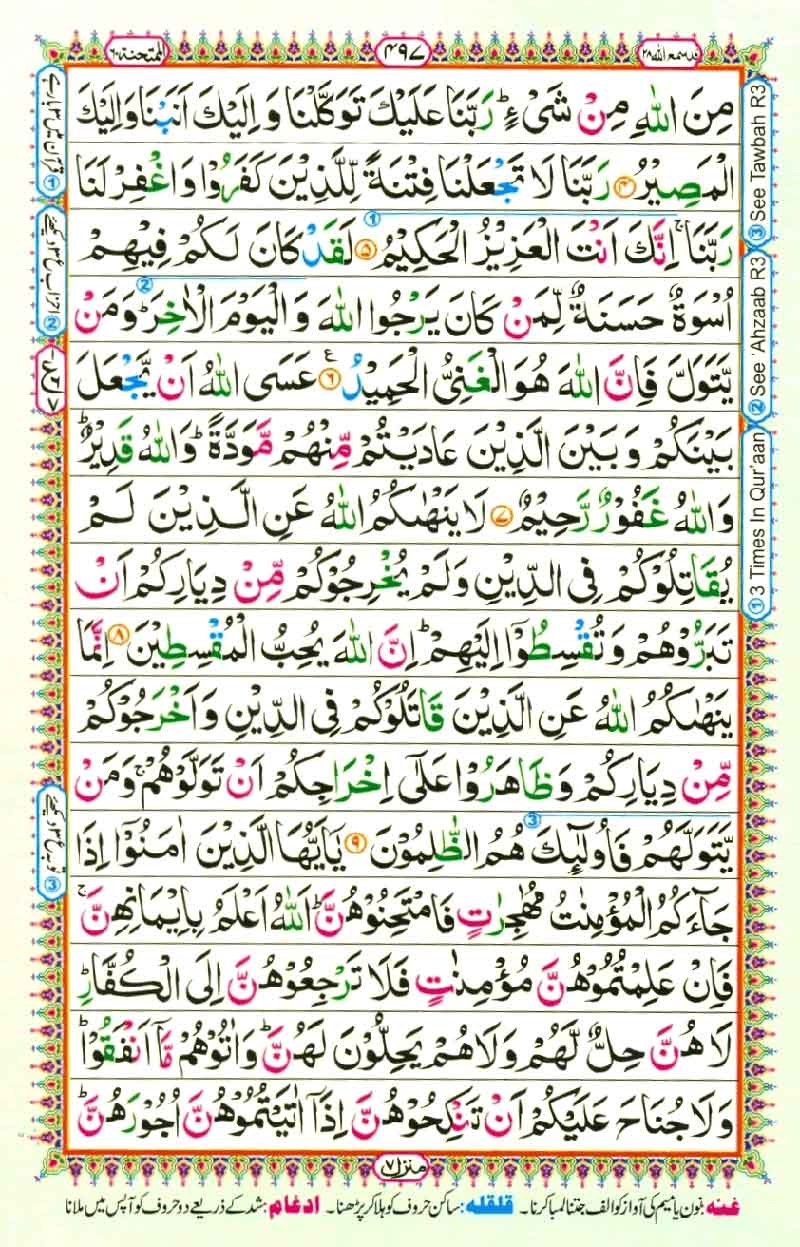 قد سمع الله ٢٨
٤٩٧
الممتحنة ٦٠
مِنَ اللّٰهِ مِنْ شَیْءٍ ؕ رَبَّنَا عَلَیْكَ تَوَكَّلْنَا وَ اِلَیْكَ اَنَبْنَا وَ اِلَیْكَ
الْمَصِیْرُ ۴ رَبَّنَا لَا تَجْعَلْنَا فِتْنَةً لِّلَّذِیْنَ كَفَرُوْا وَ اغْفِرْ لَنَا
رَبَّنَا ۚ اِنَّكَ اَنْتَ الْعَزِیْزُ الْحَكِیْمُ ۵ لَقَدْ كَانَ لَكُمْ فِیْهِمْ
اُسْوَةٌ حَسَنَةٌ لِّمَنْ كَانَ یَرْجُوا اللّٰهَ وَ الْیَوْمَ الْاٰخِرَ ؕ وَ مَنْ
یَّتَوَلَّ فَاِنَّ اللّٰهَ هُوَ الْغَنِیُّ الْحَمِیْدُ ۶ ع عَسَی اللّٰهُ اَنْ یَّجْعَلَ
بَیْنَكُمْ وَ بَیْنَ الَّذِیْنَ عَادَیْتُمْ مِّنْهُمْ مَّوَدَّةً ؕ وَ اللّٰهُ قَدِیْرٌ ؕ
وَ اللّٰهُ غَفُوْرٌ رَّحِیْمٌ ۷ لَا یَنْهٰىكُمُ اللّٰهُ عَنِ الَّذِیْنَ لَمْ
یُقَاتِلُوْكُمْ فِی الدِّیْنِ وَ لَمْ یُخْرِجُوْكُمْ مِّنْ دِیَارِكُمْ اَنْ
تَبَرُّوْهُمْ وَ تُقْسِطُوْۤا اِلَیْهِمْ ؕ اِنَّ اللّٰهَ یُحِبُّ الْمُقْسِطِیْنَ ۸ اِنَّمَا
یَنْهٰىكُمُ اللّٰهُ عَنِ الَّذِیْنَ قَاتَلُوْكُمْ فِی الدِّیْنِ وَ اَخْرَجُوْكُمْ
مِّنْ دِیَارِكُمْ وَ ظَاهَرُوْا عَلٰۤی اِخْرَاجِكُمْ اَنْ تَوَلَّوْهُمْ ۚ وَ مَنْ
یَّتَوَلَّهُمْ فَاُولٰٓىِٕكَ هُمُ الظّٰلِمُوْنَ ۹ یٰۤاَیُّهَا الَّذِیْنَ اٰمَنُوْۤا اِذَا
جَآءَكُمُ الْمُؤْمِنٰتُ مُهٰجِرٰتٍ فَامْتَحِنُوْهُنَّ ؕ اَللّٰهُ اَعْلَمُ بِاِیْمَانِهِنَّ ۚ
فَاِنْ عَلِمْتُمُوْهُنَّ مُؤْمِنٰتٍ فَلَا تَرْجِعُوْهُنَّ اِلَی الْكُفَّارِ ؕ
لَا هُنَّ حِلٌّ لَّهُمْ وَ لَا هُمْ یَحِلُّوْنَ لَهُنَّ ؕ وَ اٰتُوْهُمْ مَّاۤ اَنْفَقُوْا ؕ
وَ لَا جُنَاحَ عَلَیْكُمْ اَنْ تَنْكِحُوْهُنَّ اِذَاۤ اٰتَیْتُمُوْهُنَّ اُجُوْرَهُنَّ ؕ
① 3 Times In Qur'aan
② See 'Ahzaab R3
③ See Tawbah R3
① قرآن میں ۳ بار ہے
② احزاب ع ۳ دیکھیے
③ توبہ ع ۳ دیکھیے
منزل ۷
غنه: نون یا میم کی آواز کو الف جتنا لمبا کرنا۔ قلقله: ساکن حروف کو ہلا کر پڑھنا۔ ادغام: شد کے ذریعے دو حروف کو آپس میں ملانا